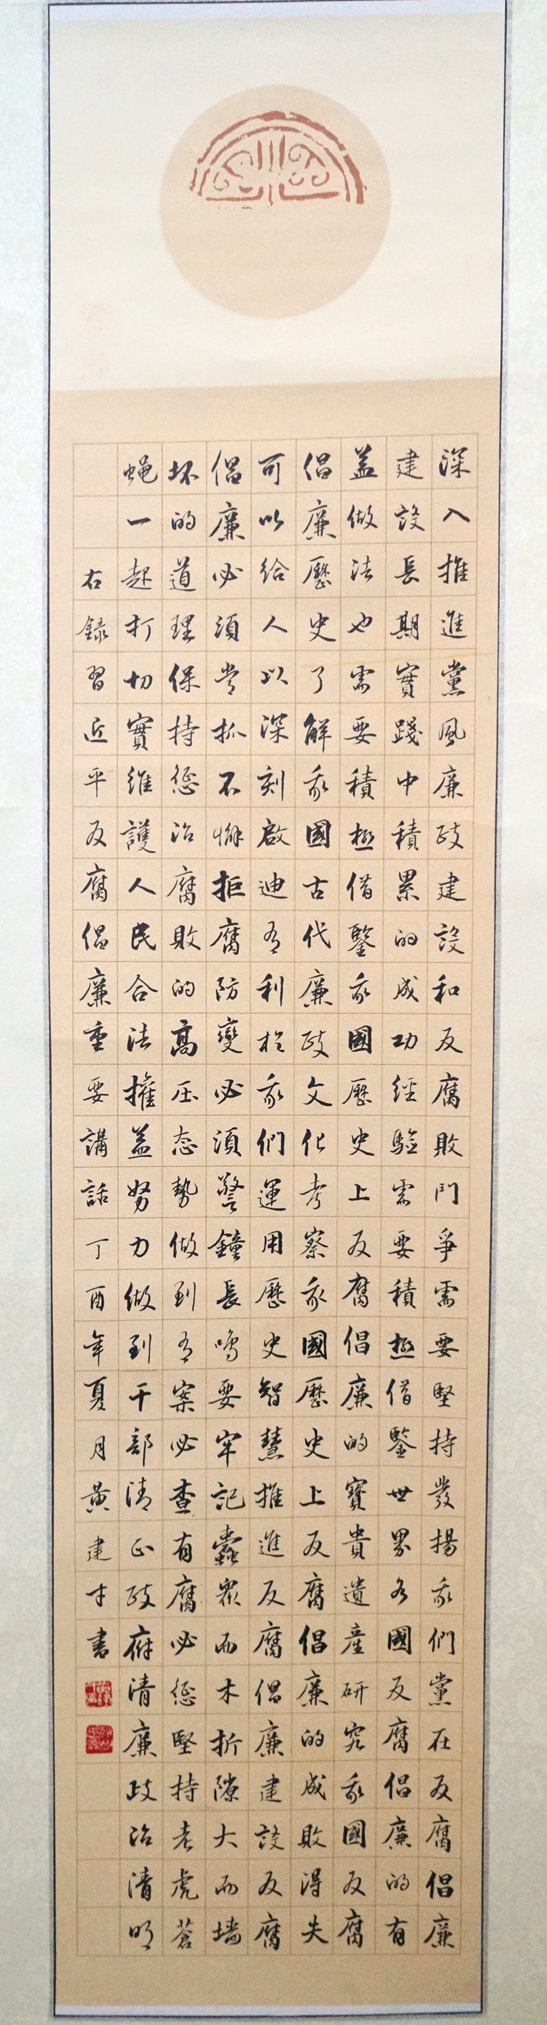 深入推進黨風廉政建設和反腐敗鬥爭需要堅持發揚我們黨在反腐倡廉
建設長期實踐中積累的成功經驗需要積極借鑒世界各國反腐倡廉的有
益做法也需要積極借鑒我國歷史上反腐倡廉的寶貴遺產研究我國反腐
倡廉歷史了解我國古代廉政文化考察我國歷史上反腐倡廉的成敗得失
可以給人以深刻啟迪有利於我們運用歷史智慧推進反腐倡廉建設反腐
倡廉必須常抓不懈拒腐防變必須警鐘長鳴要牢記蠹眾而木折隙大而墙
坏的道理保持懲治腐敗的高压态勢做到有案必查有腐必懲堅持老虎蒼
蝇一起打切實維護人民合法權益努力做到干部清正政府清廉政治清明
右錄習近平反腐倡廉重要講話丁酉年夏月黃建才書